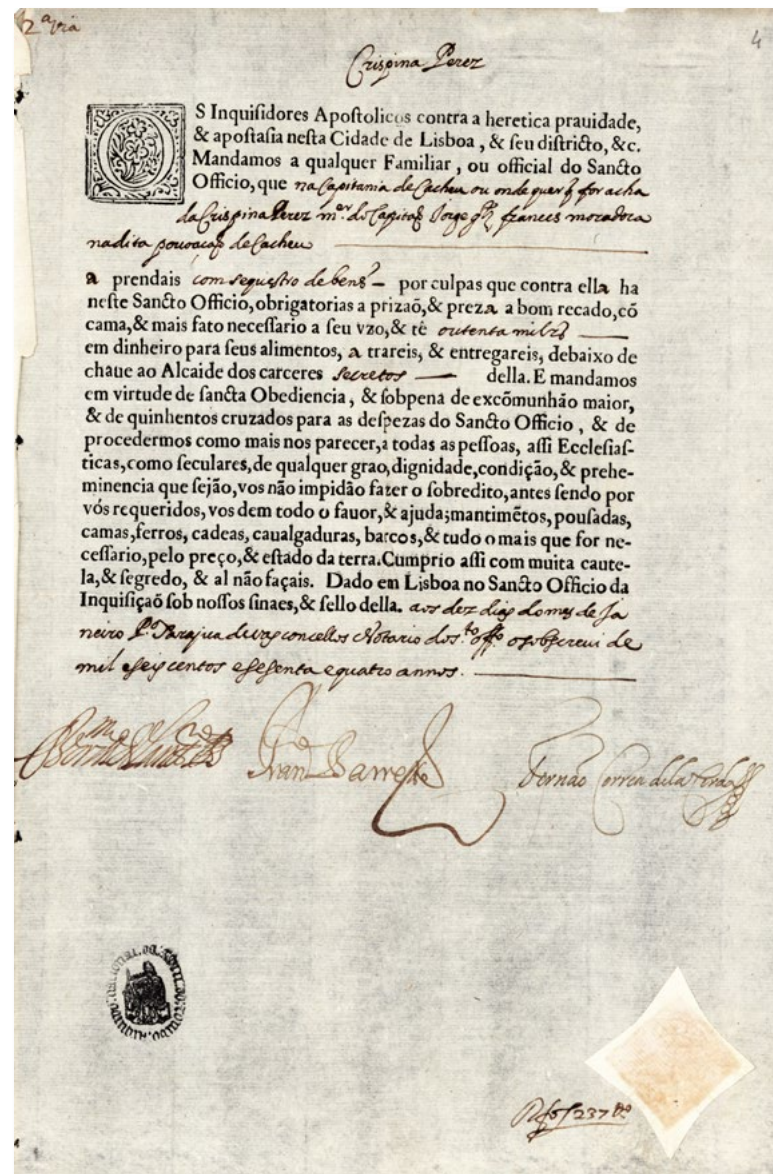 2ª via
4
Crispina Perez
OS Inquiſidores Apoſtolicos contra a heretica prauidade,
& apoſtaſia neſta Cidade de Lisboa, & ſeu diſtricto, &c.
Mandamos a qualquer Familiar, ou official do Sancto
Officio, que na Capitania de Cacheu ou onde quer q̃ for acha
da Crispina Perez m.er do Capitaõ Jorge glz̃ frances moradora
na dita pouoaçaõ de Cacheu
a prendais com sequestro de bens por culpas que contra ella ha
neſte Sancto Officio, obrigatorias a prizaõ, & preza a bom recado, cõ
cama, & mais fato neceſſario a ſeu vzo, & tè outenta mil rs
em dinheiro para ſeus alimentos, a trareis, & entregareis, debaixo de
chaue ao Alcaide dos carceres secretos della. E mandamos
em virtude de ſancta Obediencia, & ſobpena de excõmunhão maior,
& de quinhentos cruzados para as deſpezas do Sancto Officio, & de
procedermos como mais nos parecer, a todas as peſſoas, aſſi Eccleſiaſ-
ticas, como ſeculares, de qualquer grao, dignidade, condição, & prehe-
minencia que ſejão, vos não impidão fazer o ſobredito, antes ſendo por
vós requeridos, vos dem todo o fauor, & ajuda; mantimẽtos, pouſadas,
camas, ferros, cadeas, caualgaduras, barcos, & tudo o mais que for ne-
ceſſario, pelo preço, & eſtado da terra. Cumprio aſſi com muita caute-
la, & ſegredo, & al não façais. Dado em Lisboa no Sancto Officio da
Inquiſiçaõ ſob noſſos ſinaes, & ſello della. aos dez dias do mes de Ja
neiro Notario do s.to off.o o sobscreui de
mil e seis centos e sesenta e quatro annos.
Fernão Correa de la Cerda
237